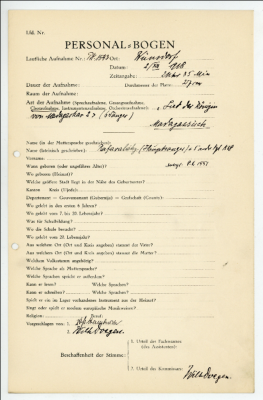 Lfd. Nr.
PERSONAL-BOGEN
Lautliche Aufnahme Nr.: PK 1573 Ort: Wünsdorf
Datum: 2/XII 1918
Zeitangabe: 2 Uhr 35 Min
Dauer der Aufnahme: Durchmesser der Platte: 27 cm
Raum der Aufnahme:
Art der Aufnahme (Sprechaufnahme, Gesangsaufnahme,
Choraufnahme, Instrumentenaufnahme, Orchesteraufnahme): Lied der Königin
von Madagaskar 2) (Gesang)
Madagassisch
Name (in der Muttersprache geschrieben):
Name (lateinisch geschrieben):
Vorname:
Wann geboren (oder ungefähres Alter)?
Wo geboren (Heimat)?
Welche größere Stadt liegt in der Nähe des Geburtsortes?
Kanton — Kreis (Ujedz):
Departement — Gouvernement (Gubernija) — Grafschaft (County):
Wo gelebt in den ersten 6 Jahren?
Wo gelebt vom 7. bis 20. Lebensjahr?
Was für Schulbildung?
Wo die Schule besucht?
Wo gelebt vom 20. Lebensjahr?
Aus welchem Ort (Ort und Kreis angeben) stammt der Vater?
Aus welchem Ort (Ort und Kreis angeben) stammt die Mutter?
Welchem Volksstamm angehörig?
Welche Sprache als Muttersprache?
Welche Sprachen spricht er außerdem?
Kann er lesen? Welche Sprachen?
Kann er schreiben? Welche Sprachen?
Spielt er ein im Lager vorhandenes Instrument aus der Heimat?
Singt oder spielt er modern europäische Musikweisen?
Religion: Beruf:
Vorgeschlagen von: 1.
2. Wilh. Doegen
Beschaffenheit der Stimme:
6. Urteil des Fachmannes
(des Assistenten):
7. Urteil des Kommissars:
Wilh. Doegen